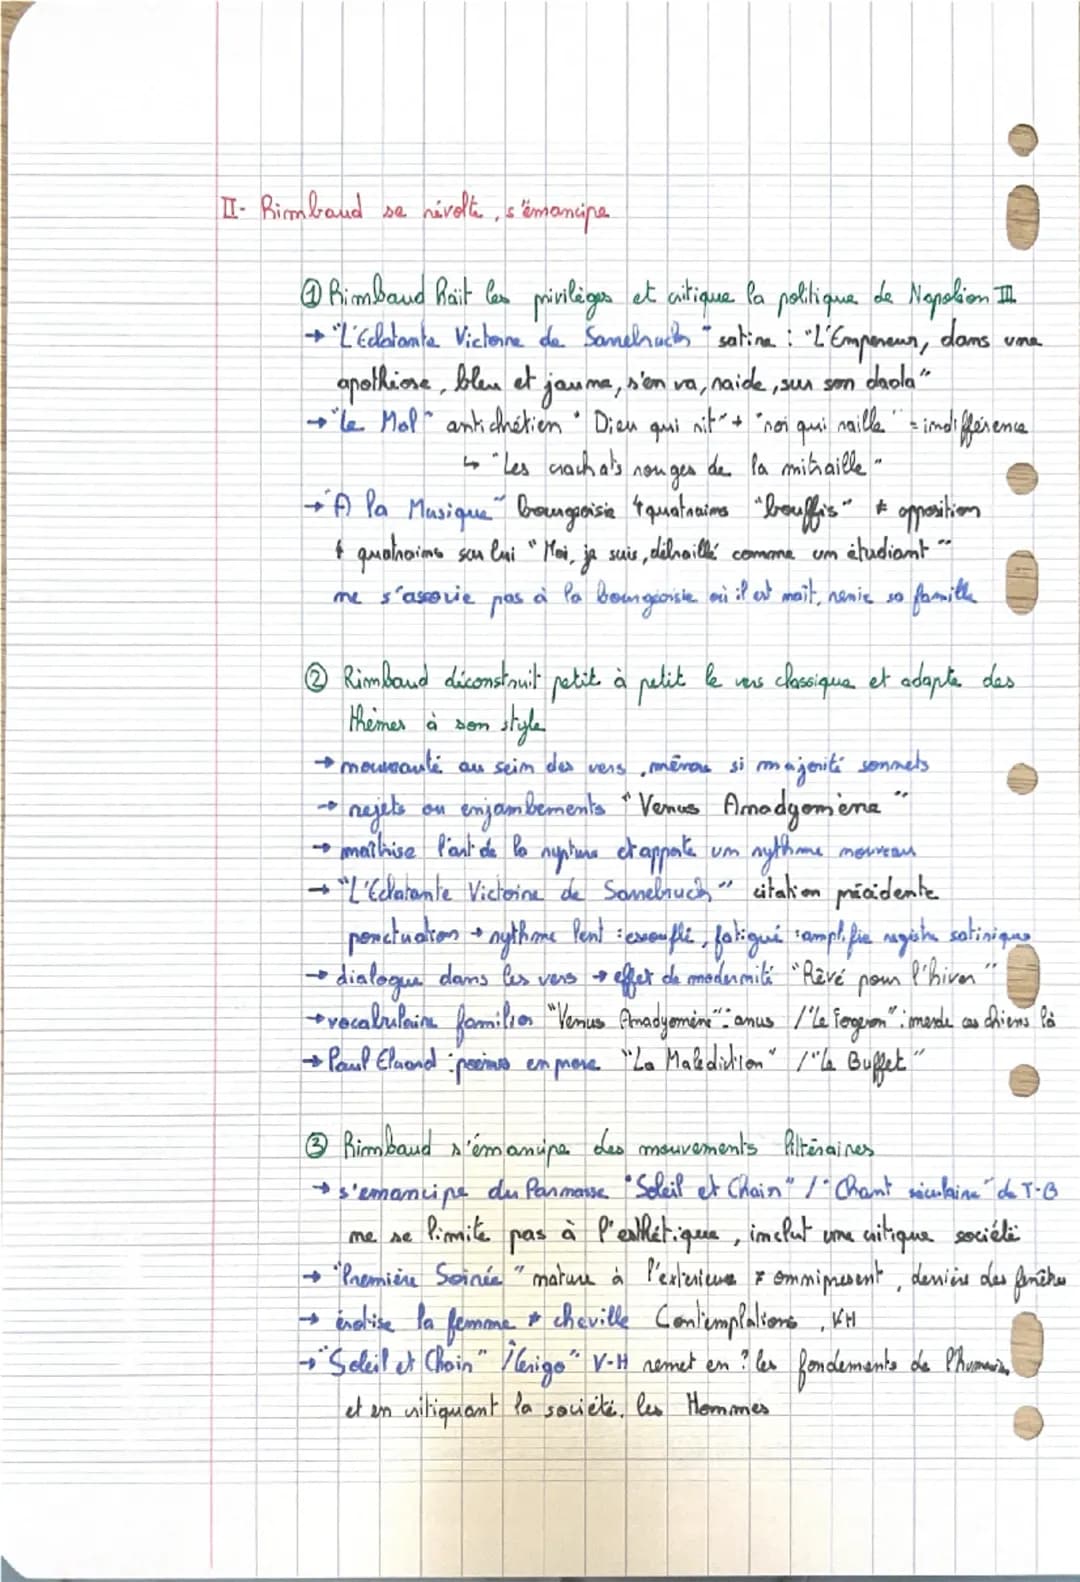 II- Rimbaud se révolte, s'émancipe
① Rimbaud hait les privilèges et critique la politique de Napoléon III
→ "L'Eclatante Victoire de Sarrebruck" satire : "L'Empereur, dans une
apothéose, bleu et jaune, s'en va, raide, sur son dada"
→ "Le Mal" antichrétien "Dieu qui rit" + "roi qui raille" = indifférence
↳ "Les crachats rouges de la mitraille"
→ "A la Musique" bourgeoisie 4 quatrains "bouffis" ≠ opposition
4 quatrains sur lui "Moi, je suis, débraillé comme un étudiant"
ne s'associe pas à la bourgeoisie où il est naît, renie sa famille
② Rimbaud déconstruit petit à petit le vers classique et adapte des
thèmes à son style
→ nouveauté au sein des vers, même si majorité sonnets
→ rejets ou enjambements "Venus Anadyomène"
→ maîtrise l'art de la rupture et apporte un rythme nouveau
→ "L'Eclatante Victoire de Sarrebruck" citation précédente
ponctuation → rythme lent : essouflé, fatigué : amplifie registre satirique
→ dialogue dans les vers → effet de modernité "Rêvé pour l'hiver"
→ vocabulaire familier "Venus Anadyomène" : anus / "Le Forgeron" : merde ces chiens là
→ Paul Eluard : poèmes en prose "La Malediction" / "Le Buffet"
③ Rimbaud s'émancipe des mouvements littéraires
→ s'emancipe du Parnasse "Soleil et Chair" / "Chant séculaire" de T-B
ne se limite pas à l'esthétique, inclut une critique société
→ "Première Soirée" nature à l'extérieure ≠ omniprésent, derrière des fenêtres
→ érotise la femme ≠ cheville Contemplations, VH
→ "Soleil et Chair" / "Cerigo" V-H remet en ? les fondements de l'humain
et en critiquant la société, les Hommes